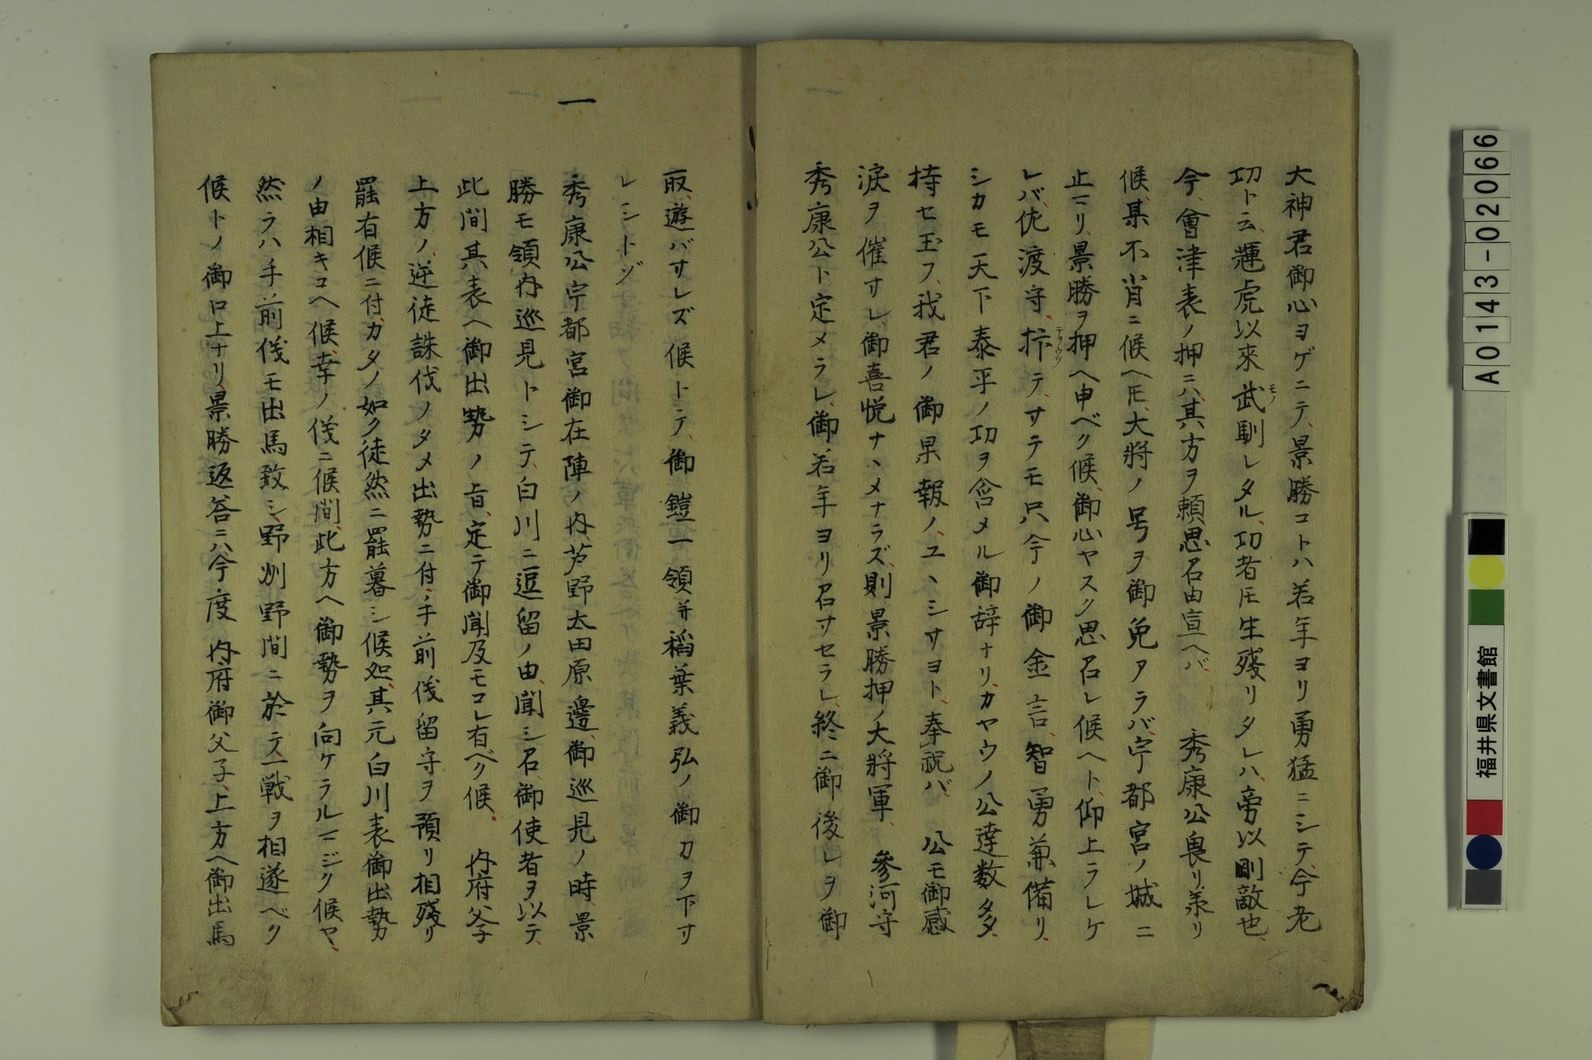 大神君御心ヨゲニテ、景勝コトハ若年ヨリ勇猛ニシテ、今老
功ト云、輝虎以來武馴レタル功者𪜈生殘リタレハ、旁以剛敵也、
モノ
今、會津表ノ押ニハ、其方ヲ頼思召由宣ヘバ、 秀康公畏リ承リ
候、某不肖ニ候ヘ𪜈、大將ノ号ヲ御免アラバ、宇都宮ノ城ニ
止マリ、景勝ヲ押ヘ申ベク候、御心ヤスク思召レ候ヘト、仰上ラレケ
レバ、佐渡守、抃テ、サテモ只今ノ御金言、智勇兼備リ、
テヲウツ
シカモ天下泰平ノ功ヲ含メル御辞ナリ、カヤウノ公達数多
持セ玉フ、我君ノ御果報ノ、ユヽシサヨト、奉祝バ、 公モ御感
涙ヲ催サレ御喜悦ナヽメナラズ、則景勝押ノ大將軍、 參河守
秀康公ト定メラレ、御若年ヨリ召サセラレ、終ニ御後レヲ御
取、遊バサレズ候トテ、御鎧一領并稲葉義弘ノ御刀ヲ下サ
レシトゾ
一
秀康公宇都宮御在陣ノ内、芦野太田原邊、御巡見ノ時、景
勝モ領内巡見トシテ、白川ニ逗留ノ由、聞シ召、御使者ヲ以テ、
此間其表ヘ御出勢ノ旨、定テ御聞及モコレ有ベク候、 内府父子
上方ノ逆徒誅伐ノタメ出勢ニ付、手前儀留守ヲ預リ相殘リ
罷有候ニ付、カタノ如ク徒然ニ罷暮シ候処、其元白川表御出勢
ノ由相キコヘ候、幸ノ儀ニ候間、此方ヘ御勢ヲ向ケラルマジク候ヤ、
然ラハ手前儀モ出馬致シ、野州野間ニ於テ一戦ヲ相遂ベク
候トノ御口上ナリ、景勝返答ニハ今度 内府御父子、上方ヘ御出馬
A0143-02066
福井県文書館